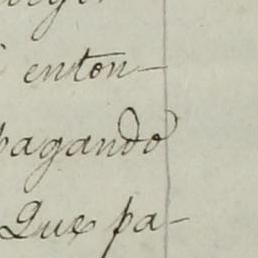 enton-
pagando
Que pa-